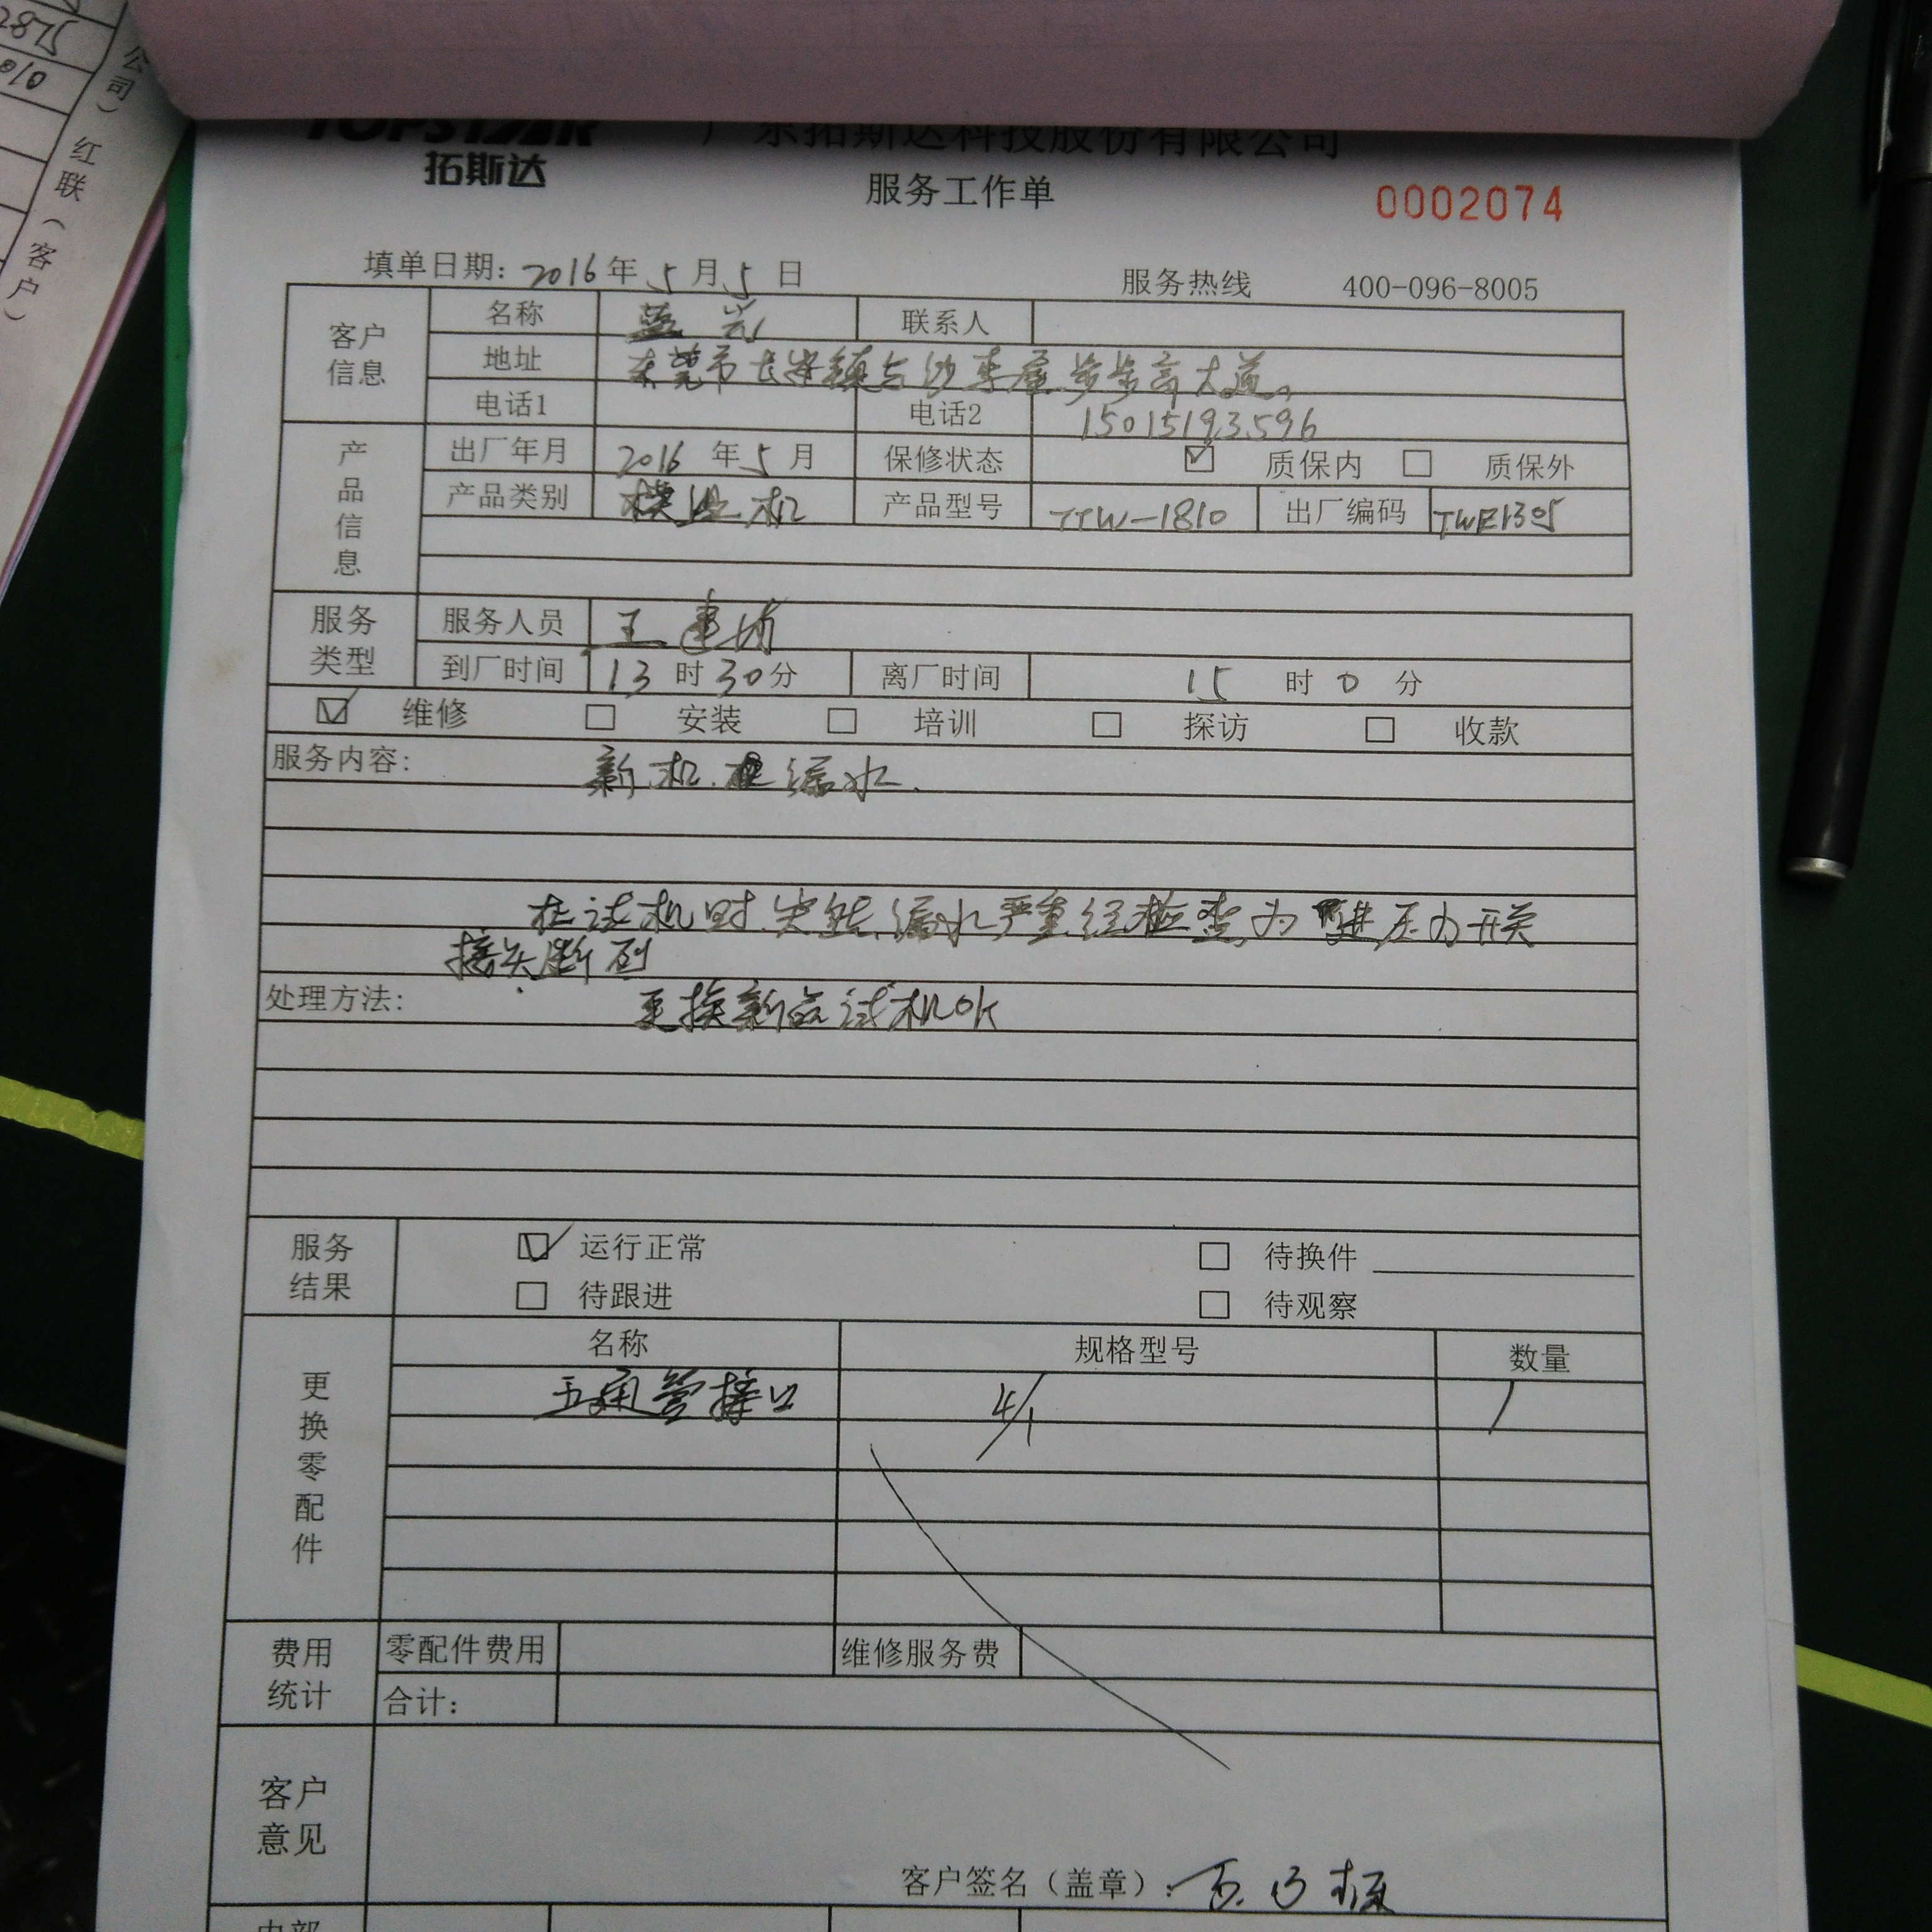 2875
010
公司）红联（客户）
TOPSTAR
拓斯达
广东拓斯达科技股份有限公司
服务工作单
0002074
填单日期: 2016年5月5日
服务热线 400-096-8005
客户信息
名称 蓝光 联系人
地址 东莞市长安镇乌沙李屋步步高大道。
电话1 电话2 15015193596
产品信息
出厂年月 2016年5月 保修状态 ☑ 质保内 □ 质保外
产品类别 模温机 产品型号 TTW-1810 出厂编码 TWE1305
服务类型
服务人员 王建
到厂时间 13时30分 离厂时间 15时0分
☑ 维修 □ 安装 □ 培训 □ 探访 □ 收款
服务内容: 新机漏水.
在试机时突然漏水严重经检查为 压力开关
接头断裂
处理方法: 更换新品试机OK
服务结果
☑ 运行正常 □ 待换件
□ 待跟进 □ 待观察
更换零配件
名称 规格型号 数量
管接口 4/1 1
费用统计
零配件费用 维修服务费
合计:
客户意见
客户签名（盖章）:
内部